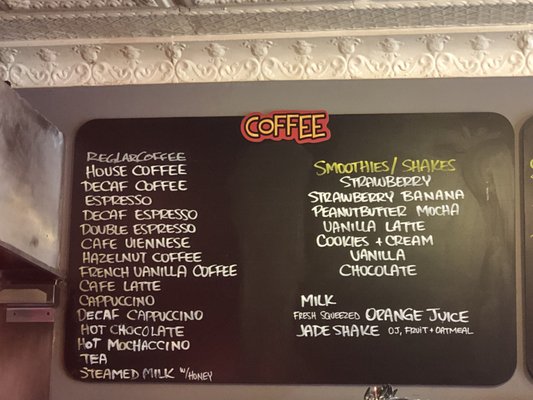 COFFEE
REGLAR COFFEE
HOUSE COFFEE
DECAF COFFEE
ESPRESSO
DECAF ESPRESSO
DOUBLE ESPRESSO
CAFE VIENNESE
HAZELNUT COFFEE
FRENCH VANILLA COFFEE
CAFE LATTE
CAPPUCCINO
DECAF CAPPUCCINO
HOT CHOCOLATE
HOT MOCHACCINO
TEA
STEAMED MILK W/HONEY
SMOOTHIES/SHAKES
STRAWBERRY
STRAWBERRY BANANA
PEANUTBUTTER MOCHA
VANILLA LATTE
COOKIES + CREAM
VANILLA
CHOCOLATE
MILK
FRESH SQUEEZED ORANGE JUICE
JADE SHAKE OJ, FRUIT + OATMEAL